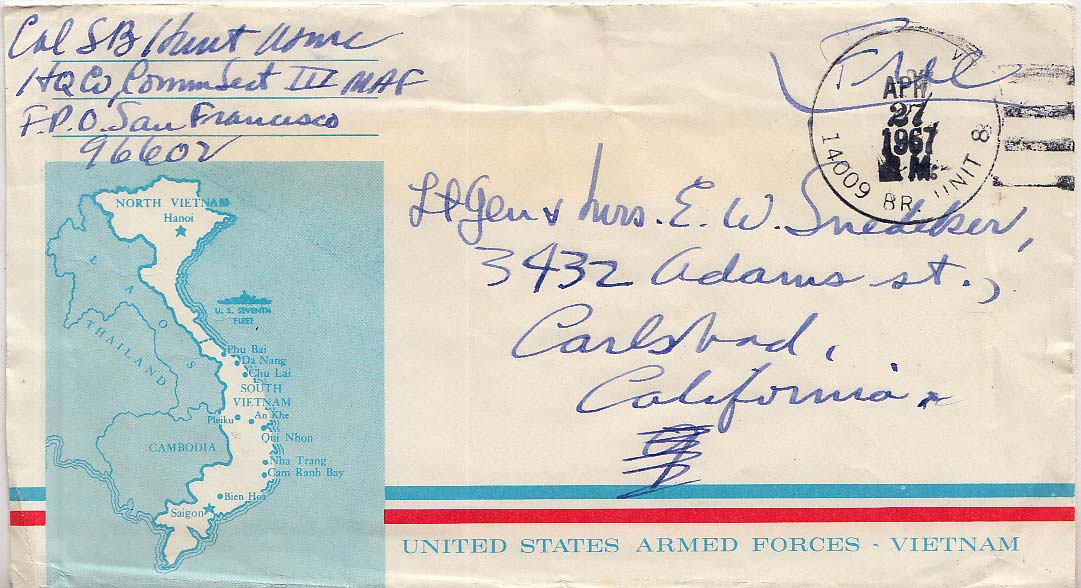 Col SB Hunt USMC
HqCo, CommSect III MAF
F.P.O. San Francisco
96602
Free
APR
27
1967
14009 BR. UNIT 8
Lt Gen & Mrs. E. W. Snedeker,
3432 Adams St.,
Carlsbad,
California.
NORTH VIETNAM
Hanoi
LAOS
U. S. SEVENTH
FLEET
THAILAND
Phu Bai
Da Nang
Chu Lai
SOUTH
VIETNAM
Pleiku
An Khe
Qui Nhon
CAMBODIA
Nha Trang
Cam Ranh Bay
Bien Hoa
Saigon
UNITED STATES ARMED FORCES - VIETNAM